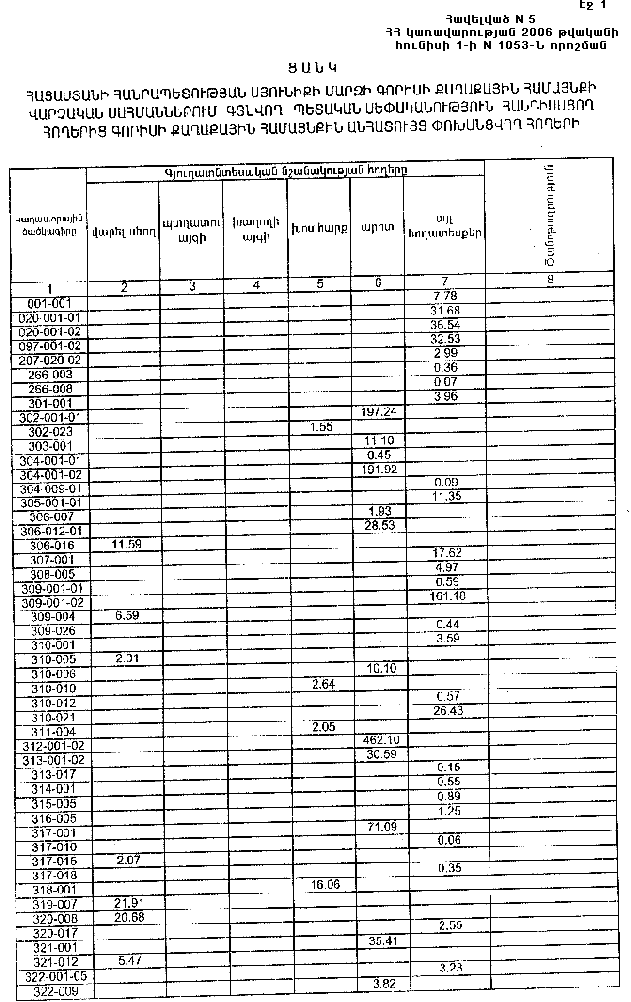 Էջ 1
Հավելված N 5
ՀՀ կառավարության 2006 թվականի
հունիսի 1-ի N 1053-Ն որոշման
ՑԱՆԿ
ՀԱՅԱՍՏԱՆԻ ՀԱՆՐԱՊԵՏՈՒԹՅԱՆ ՍՅՈՒՆԻՔԻ ՄԱՐԶԻ ԳՈՐԻՍԻ ՔԱՂԱՔԱՅԻՆ ՀԱՄԱՅՆՔԻ
ՎԱՐՉԱԿԱՆ ՍԱՀՄԱՆՆԵՐՈՒՄ ԳՏՆՎՈՂ ՊԵՏԱԿԱՆ ՍԵՓԱԿԱՆՈՒԹՅՈՒՆ ՀԱՆԴԻՍԱՑՈՂ
ՀՈՂԵՐԻՑ ԳՈՐԻՍԻ ՔԱՂԱՔԱՅԻՆ ՀԱՄԱՅՆՔԻՆ ԱՆՀԱՏՈՒՅՑ ՓՈԽԱՆՑՎՈՂ ՀՈՂԵՐԻ
Գյուղատնտեսական նշանակության հողերը
Կադաստրային ծածկագիրը վարելահող պտղատու այգի խաղողի այգի խոտհարք արոտ այլ հողատեսքեր
1 2 3 4 5 6 7 8
001-001 7.78
020-001-01 31.68
020-001-02 36.54
097-001-02 32.53
207-020-02 2.99
266-003 0.36
266-008 0.07
301-001 3.96
302-001-01 197.24
302-023 1.55
303-001 11.10
304-001-01 0.45
304-001-02 191.92
304-009-01 0.09
305-001-01 11.35
306-007 1.93
306-012-01 28.53
306-016 11.59
307-001 17.62
308-005 4.97
309-001-01 0.59
309-001-02 161.10
309-004 6.59
309-026 0.44
310-001 3.59
310-005 2.01
310-006 10.10
310-010 2.64
310-012 0.57
310-021 26.43
311-004 2.05
312-001-02 462.10
313-001-02 30.59
313-017 0.16
314-001 0.55
315-005 0.89
316-005 1.25
317-001 71.09
317-010 0.06
317-016 2.07
317-018 0.35
318-001 16.06
319-007 21.91
320-008 20.68
320-017 2.55
321-001 35.41
321-012 5.47
322-001-05 3.23
322-009 3.82